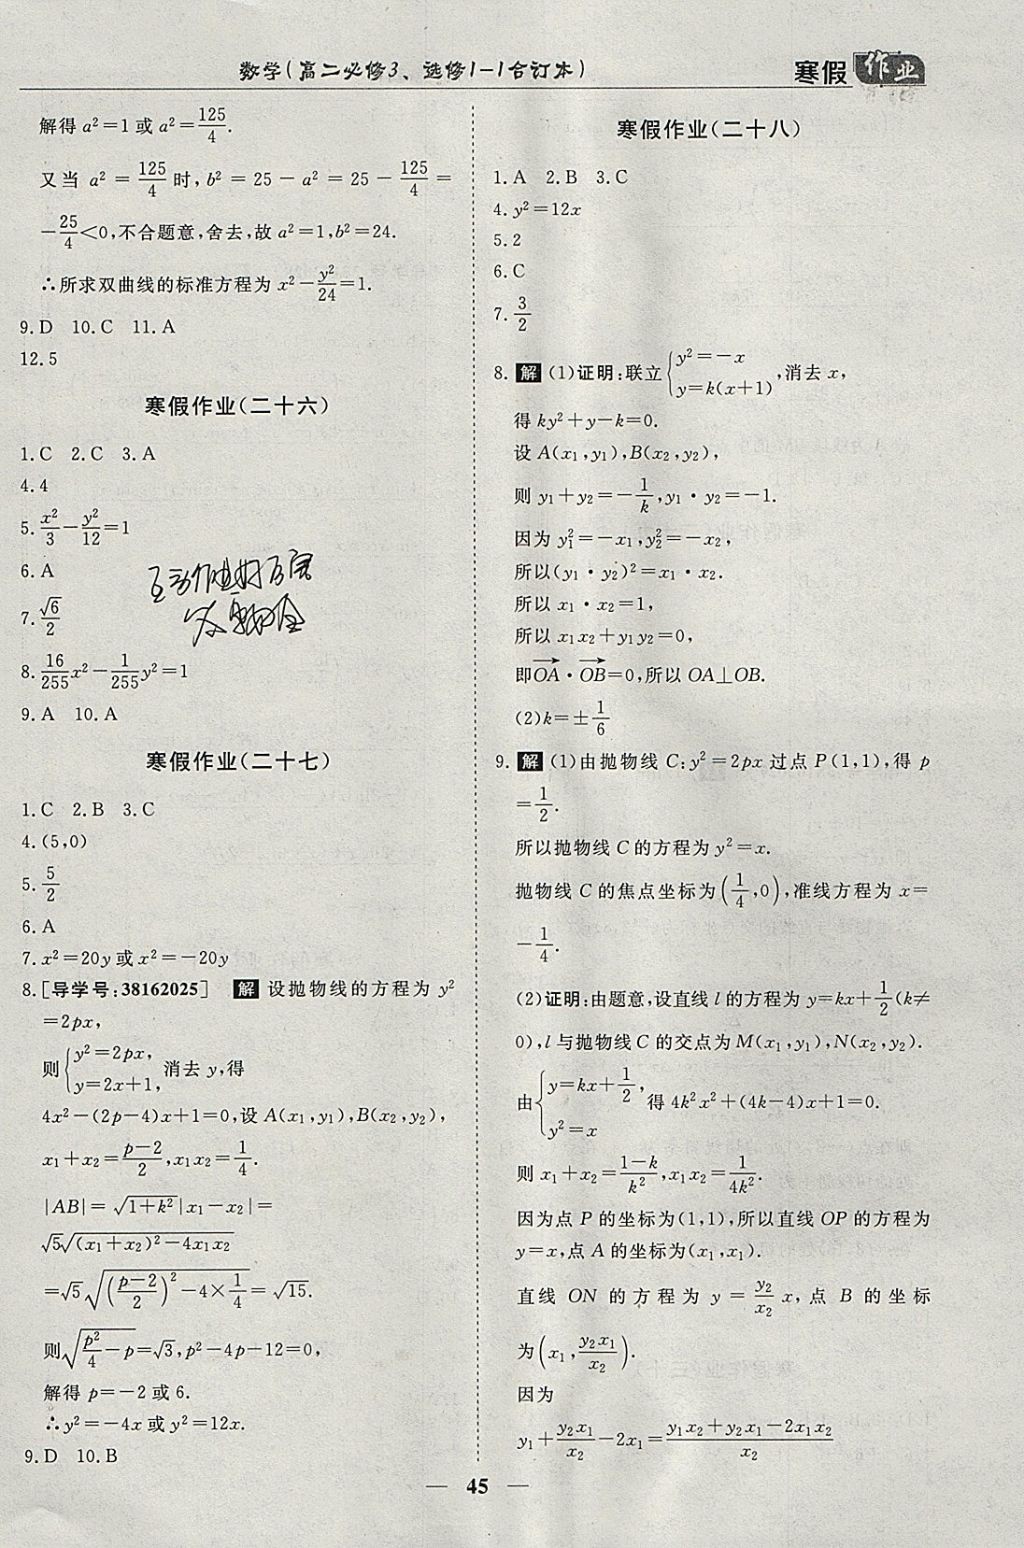 数学(高二必修3、选修1-1合订本)
寒假作业
解得 a²=1 或 a²=125/4.
又当 a² = 125/4 时, b² = 25 − a² = 25 − 125/4 =
−25/4<0,不合题意,舍去,故 a²=1,b²=24.
∴所求双曲线的标准方程为 x²−y²/24=1.
9.D 10.C 11.A
12.5
寒假作业(二十六)
1.C 2.C 3.A
4.4
5.x²/3−y²/12=1
6.A
7.√6/2
8.16/255x²−1/255y²=1
9.A 10.A
寒假作业(二十七)
1.C 2.B 3.C
4.(5,0)
5.5/2
6.A
7.x²=20y 或 x²=−20y
8.[导学号:38162025] 解 设抛物线的方程为 y²
=2px,
则{y²=2px, y=2x+1, 消去 y,得
4x²−(2p−4)x+1=0,设 A(x₁,y₁),B(x₂,y₂),
x₁+x₂=(p−2)/2,x₁x₂=1/4.
|AB|=√(1+k²)|x₁−x₂|=
√5√((x₁+x₂)²−4x₁x₂)
=√5√(((p−2)/2)²−4×1/4)=√15.
则√(p²/4−p)=√3,p²−4p−12=0,
解得 p=−2 或 6.
∴y²=−4x或 y²=12x.
9.D 10.B
寒假作业(二十八)
1.A 2.B 3.C
4.y²=12x
5.2
6.C
7.3/2
8.解 (1)证明:联立{y²=−x y=k(x+1),消去 x,
得 ky²+y−k=0.
设 A(x₁,y₁),B(x₂,y₂),
则 y₁+y₂=−1/k,y₁·y₂=−1.
因为 y₁²=−x₁,y₂²=−x₂,
所以(y₁·y₂)²=x₁·x₂.
所以 x₁·x₂=1,
所以 x₁x₂+y₁y₂=0,
即OA→·OB→=0,所以 OA⊥OB.
(2)k=±1/6
9.解 (1)由抛物线 C:y²=2px 过点 P(1,1),得 p
=1/2.
所以抛物线 C 的方程为 y²=x.
抛物线 C 的焦点坐标为(1/4,0),准线方程为 x=
−1/4.
(2)证明:由题意,设直线 l 的方程为 y=kx+1/2(k≠
0),l 与抛物线 C 的交点为 M(x₁,y₁),N(x₂,y₂).
由{y=kx+1/2, y²=x 得 4k²x²+(4k−4)x+1=0.
则 x₁+x₂=(1−k)/k²,x₁x₂=1/4k².
因为点 P 的坐标为(1,1),所以直线 OP 的方程为
y=x,点 A 的坐标为(x₁,x₁).
直线 ON 的方程为 y = y₂/x₂ x,点 B 的坐标
为(x₁,y₂x₁/x₂).
因为
y₁+y₂x₁/x₂−2x₁=(y₁x₂+y₂x₁−2x₁x₂)/x₂
— 45 —